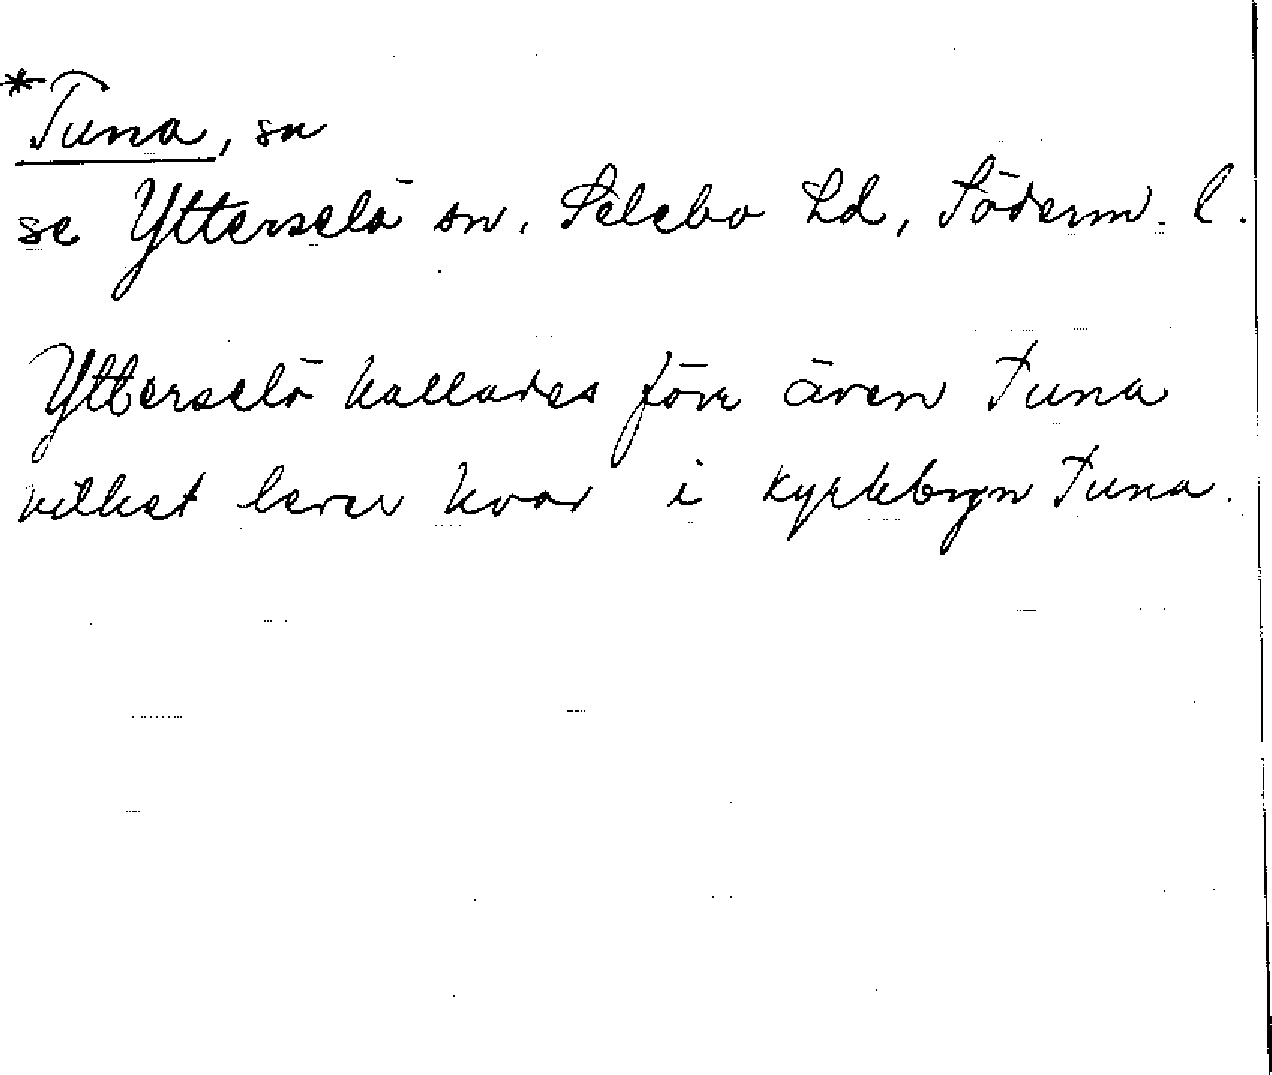 *Tuna, sn
se Ytterselö sn. Selebo hd, Söderm. l.
Ytterselö kallades förr även Tuna
vilket lever kvar i kyrkbyn Tuna.